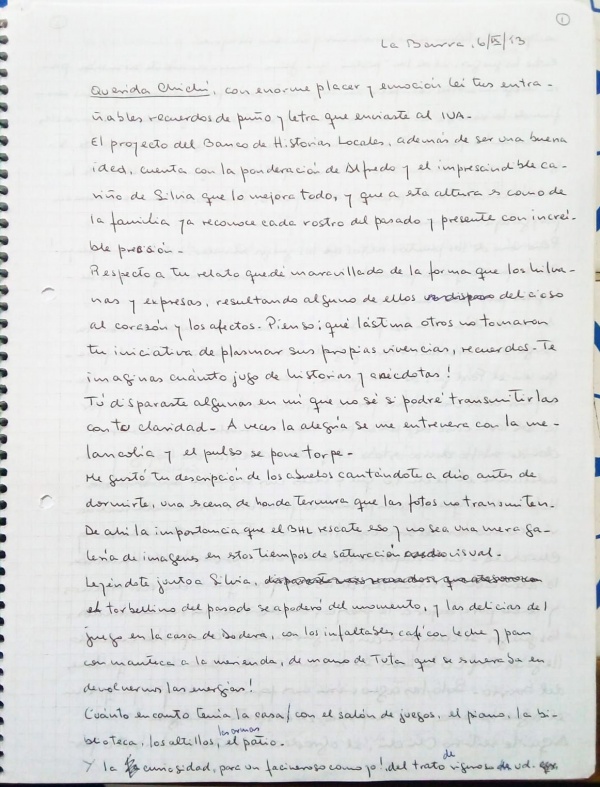 1
La Barra, 6/IX/13
Querida Chichí, con enorme placer y emoción leí tus entra-
ñables recuerdos de puño y letra que enviaste al IUA-
El proyecto del Banco de Historias Locales, además de ser una buena
idea, cuenta con la ponderación de Alfredo y el imprescindible ca-
riño de Silvia que lo mejora todo, y que a esta altura es como de
la familia ya reconoce cada rostro del pasado y presente con increí-
ble precisión-
Respecto a tu relato quedé maravillado de la forma que los hilva-
nas y expresas, resultando alguno de ellos disparo del cioso
al corazón y los afectos- Pienso; qué lástima otros no tomaron
tu iniciativa de plasmar sus propias vivencias, recuerdos- Te
imaginas cuánto jugo de historias y anécdotas!
Tú disparaste algunas en mí que no sé si podré transmitirlas
con tu claridad- A veces la alegría se me entrevera con la me-
lancolía y el pulso se pone torpe-
Me gustó tu descripción de los abuelos cantándote a dúo antes de
dormirte, una escena de honda ternura que las fotos no transmiten-
De ahí la importancia que el BHL rescate eso y no sea una mera ga-
lería de imágenes en estos tiempos de saturación visual-
Leyéndote junto a Silvia,
el torbellino del pasado se apoderó del momento, y las delicias del
juego en la casa de Dodera, con los infaltables café con leche y pan
con manteca a la merienda, de mano de Tota que se esmeraba en
devolvernos las energías!
Cuánto encanto tenía la casa/ con el salón de juegos, el piano, la bi-
blioteca, los altillos, el patio-
Y la curiosidad, para un facineroso como yo! del trato de riguroso de ud.